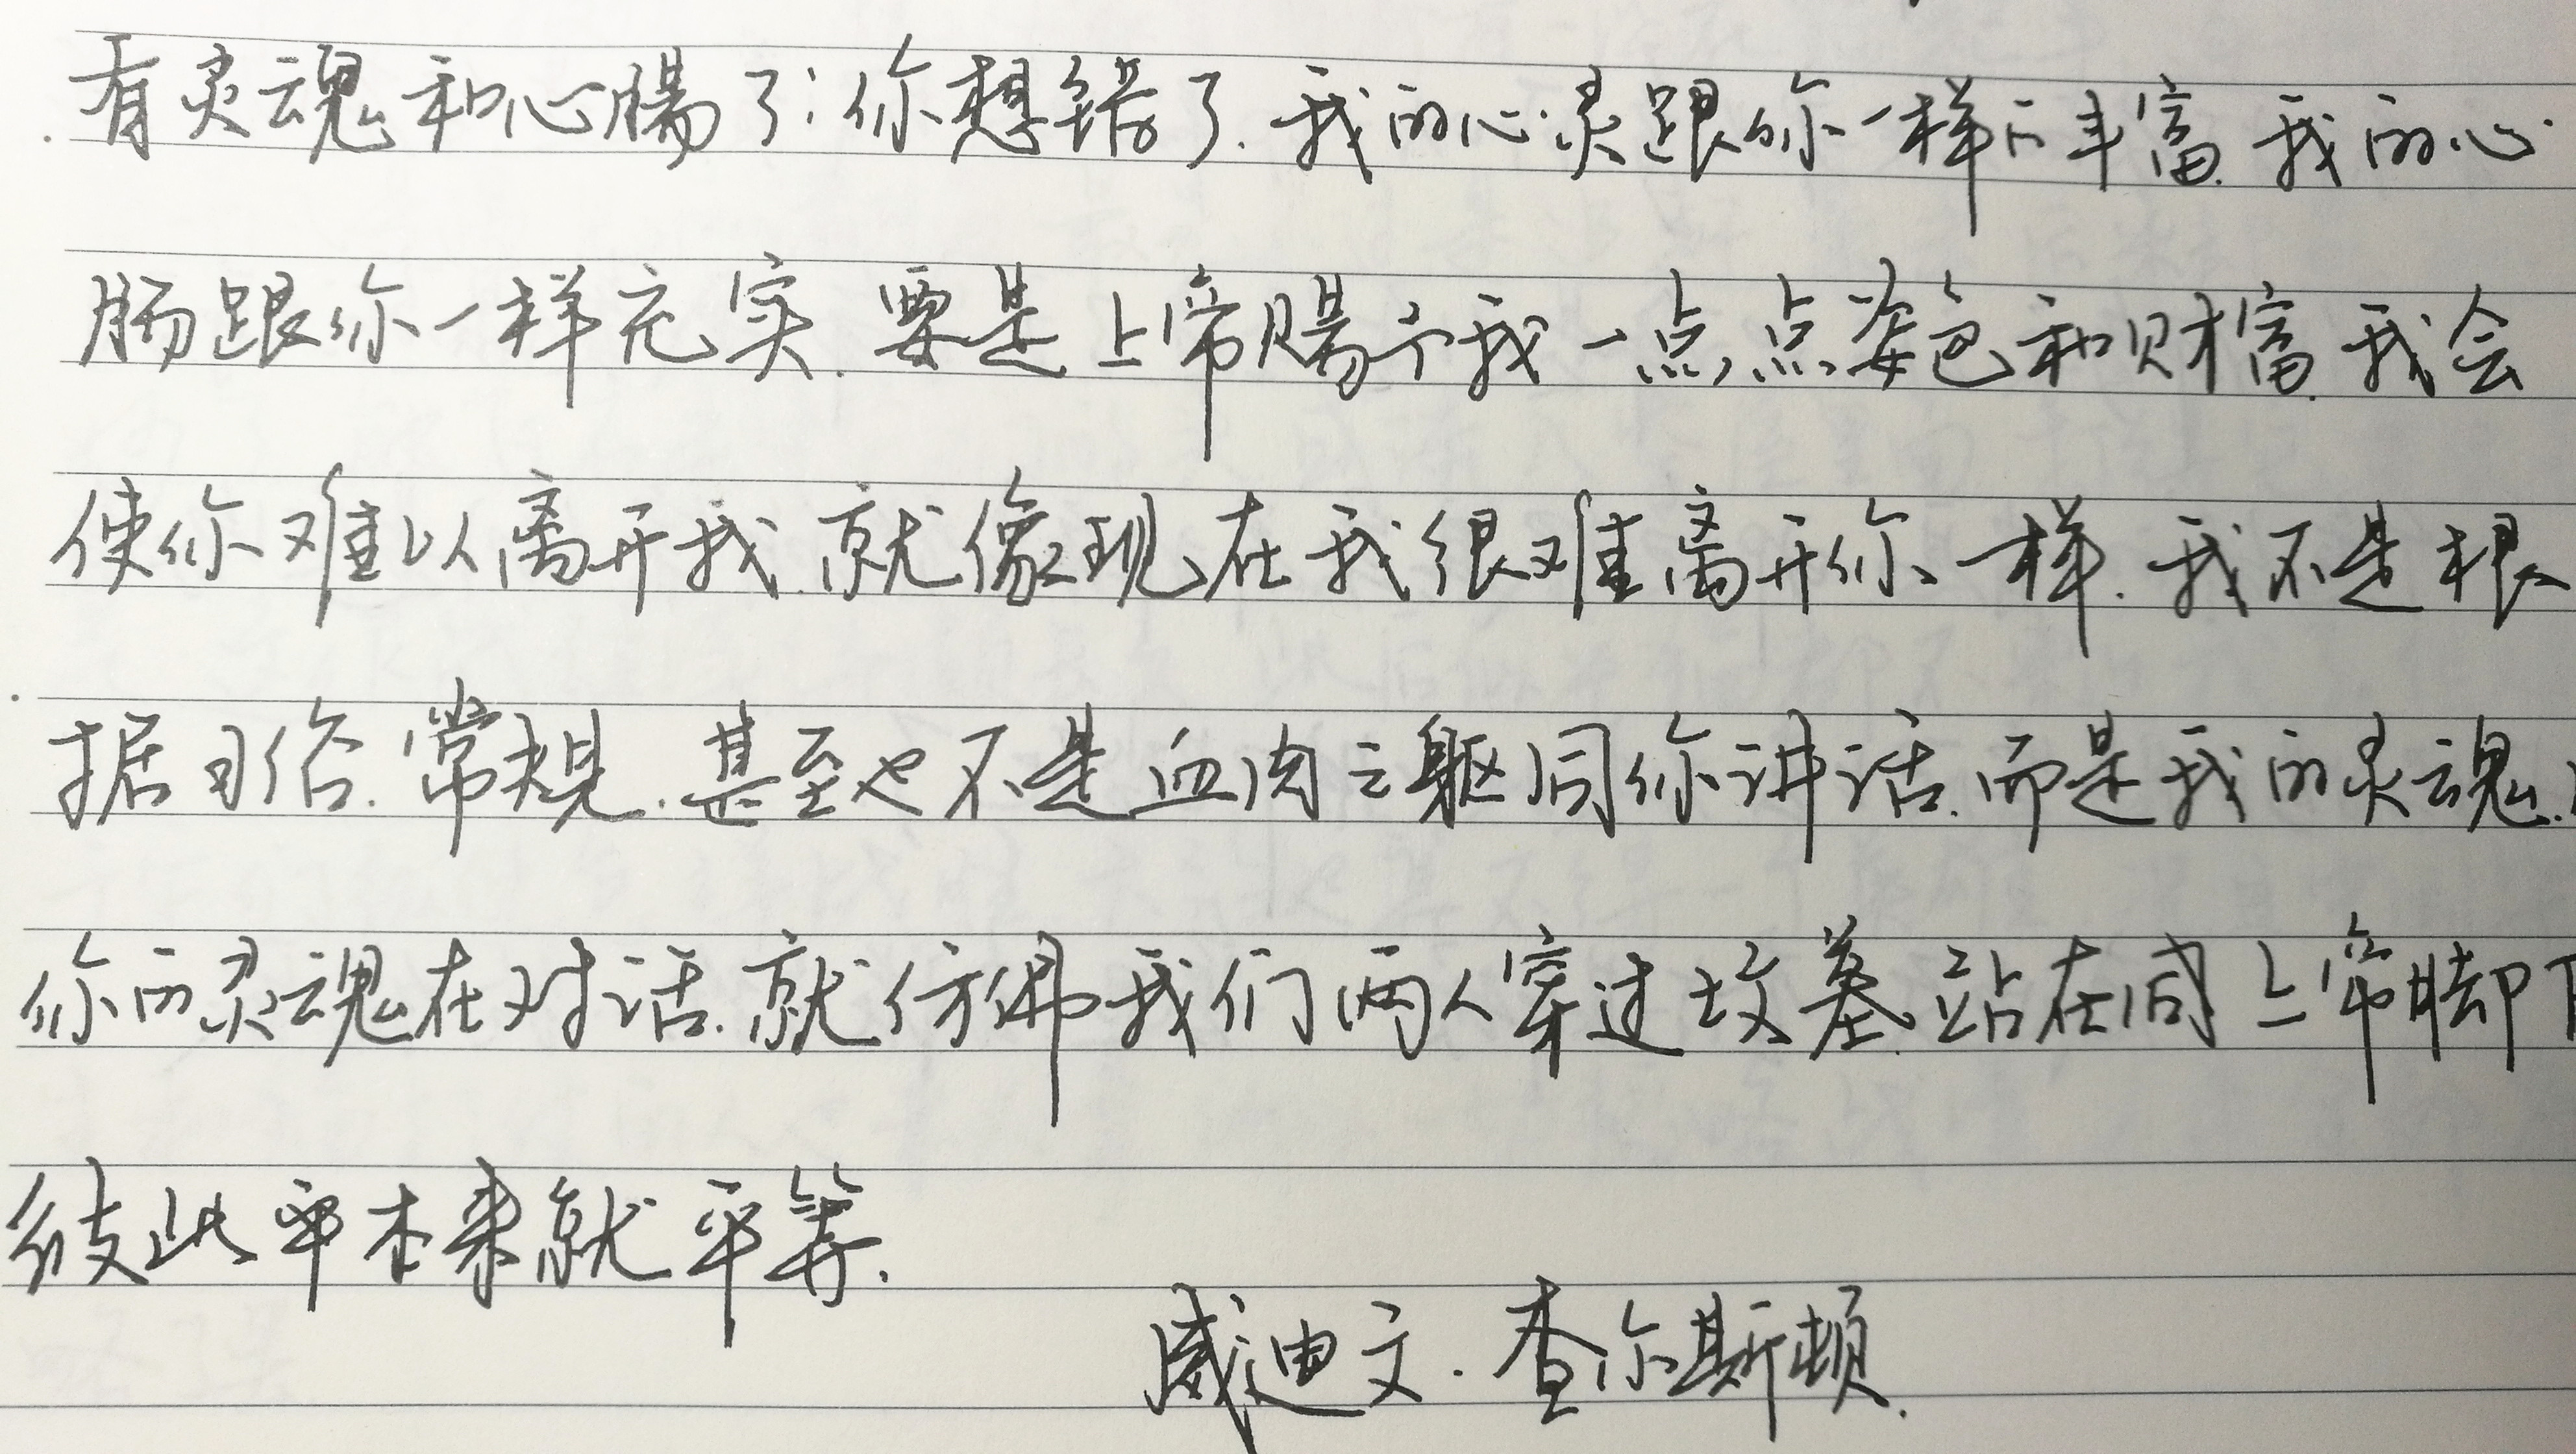 有灵魂和心腸了;你想错了.我的心灵跟你一样的丰富.我的心
肠跟你一样充实.要是上帝赐予我一点点姿色和财富.我会
使你难以离开我.就像现在我很难离开你一样.我不是根
据习俗.常规.甚至也不是血肉之躯同你讲话.而是我的灵魂.
你的灵魂在对话.就仿佛我们两人穿过坟墓.站在同上帝脚下
彼此平本来就平等.
威迪文.查尔斯顿.